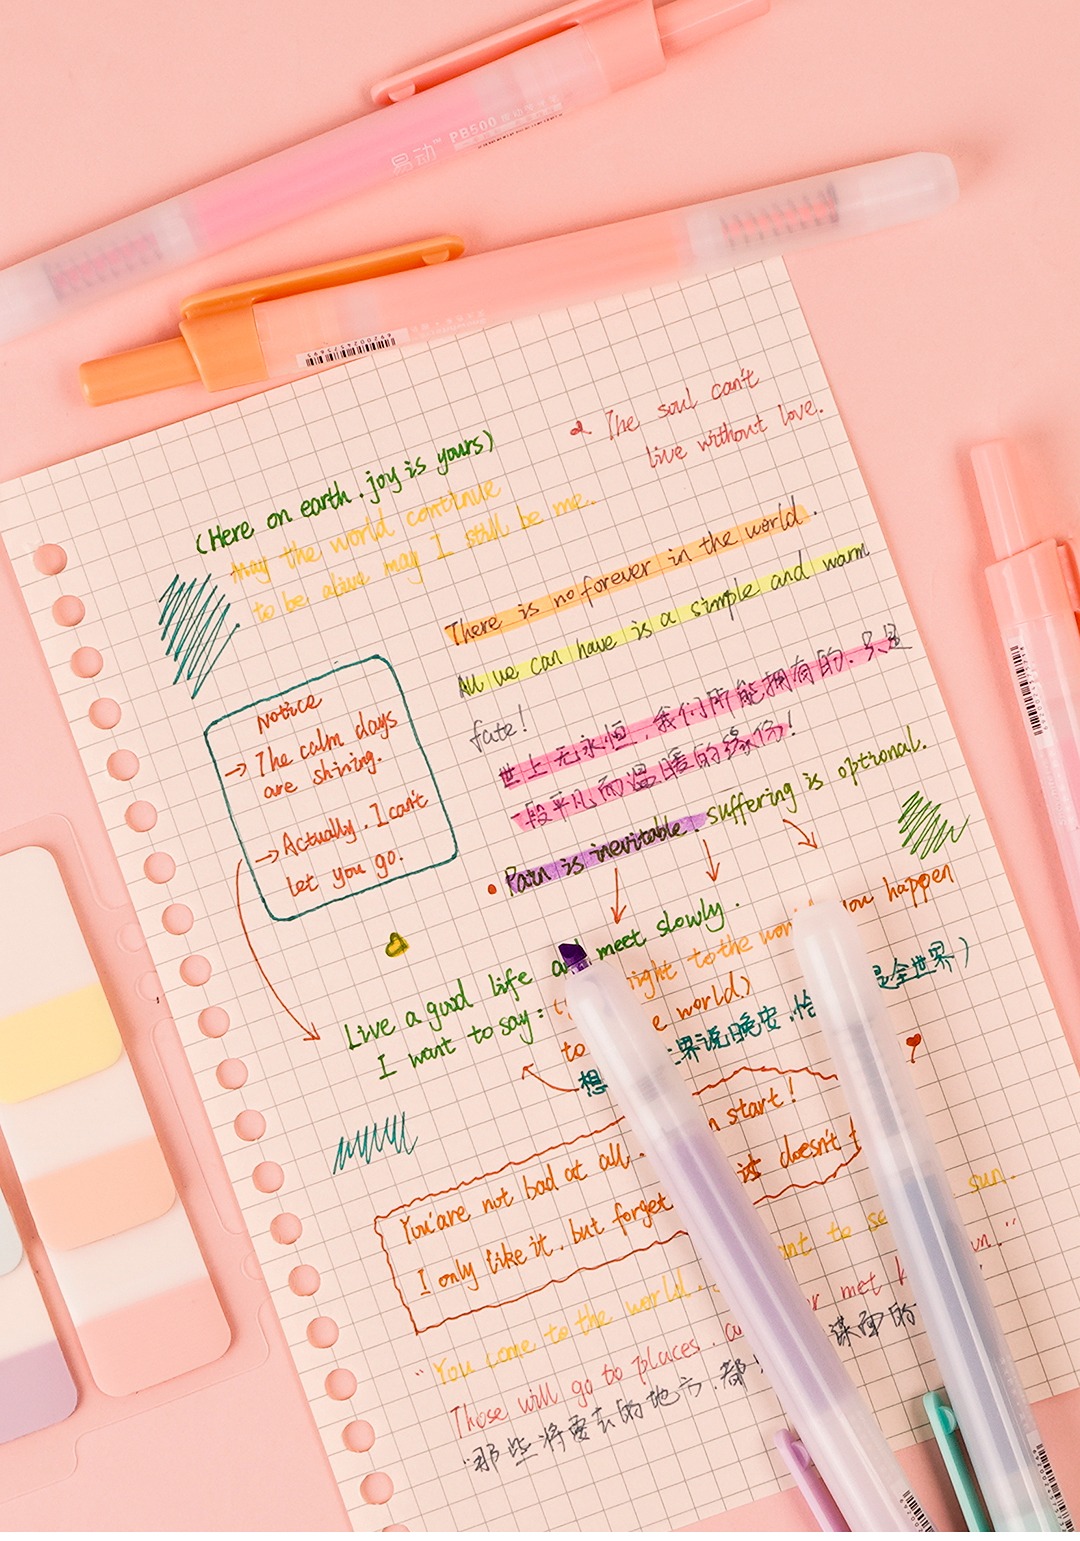 易动™ PB500
6920024625695
The soul can't
live without love.
(Here on earth. joy is yours)
May the world continue
to be alive may I still be me..
There is no forever in the world.
All we can have is a simple and warm
fate!
世上无永恒,我们所能拥有的.只是
一段平凡而温暖的缘份!
Notice
→ The calm days
are shining.
→ Actually. I can't
let you go.
• Pain is inevitable. suffering is optional.
Live a good life and meet slowly.
I want to say:
night to the
you happen
to
e world.)
想
界说晚安.恰
是全世界)
n start!
You'are not bad at all.
it doesn't
I only like it. but forget
"You come to the world.
to
sun.
Those will go to places.
met
"那些将要去的地方.都
谋面的